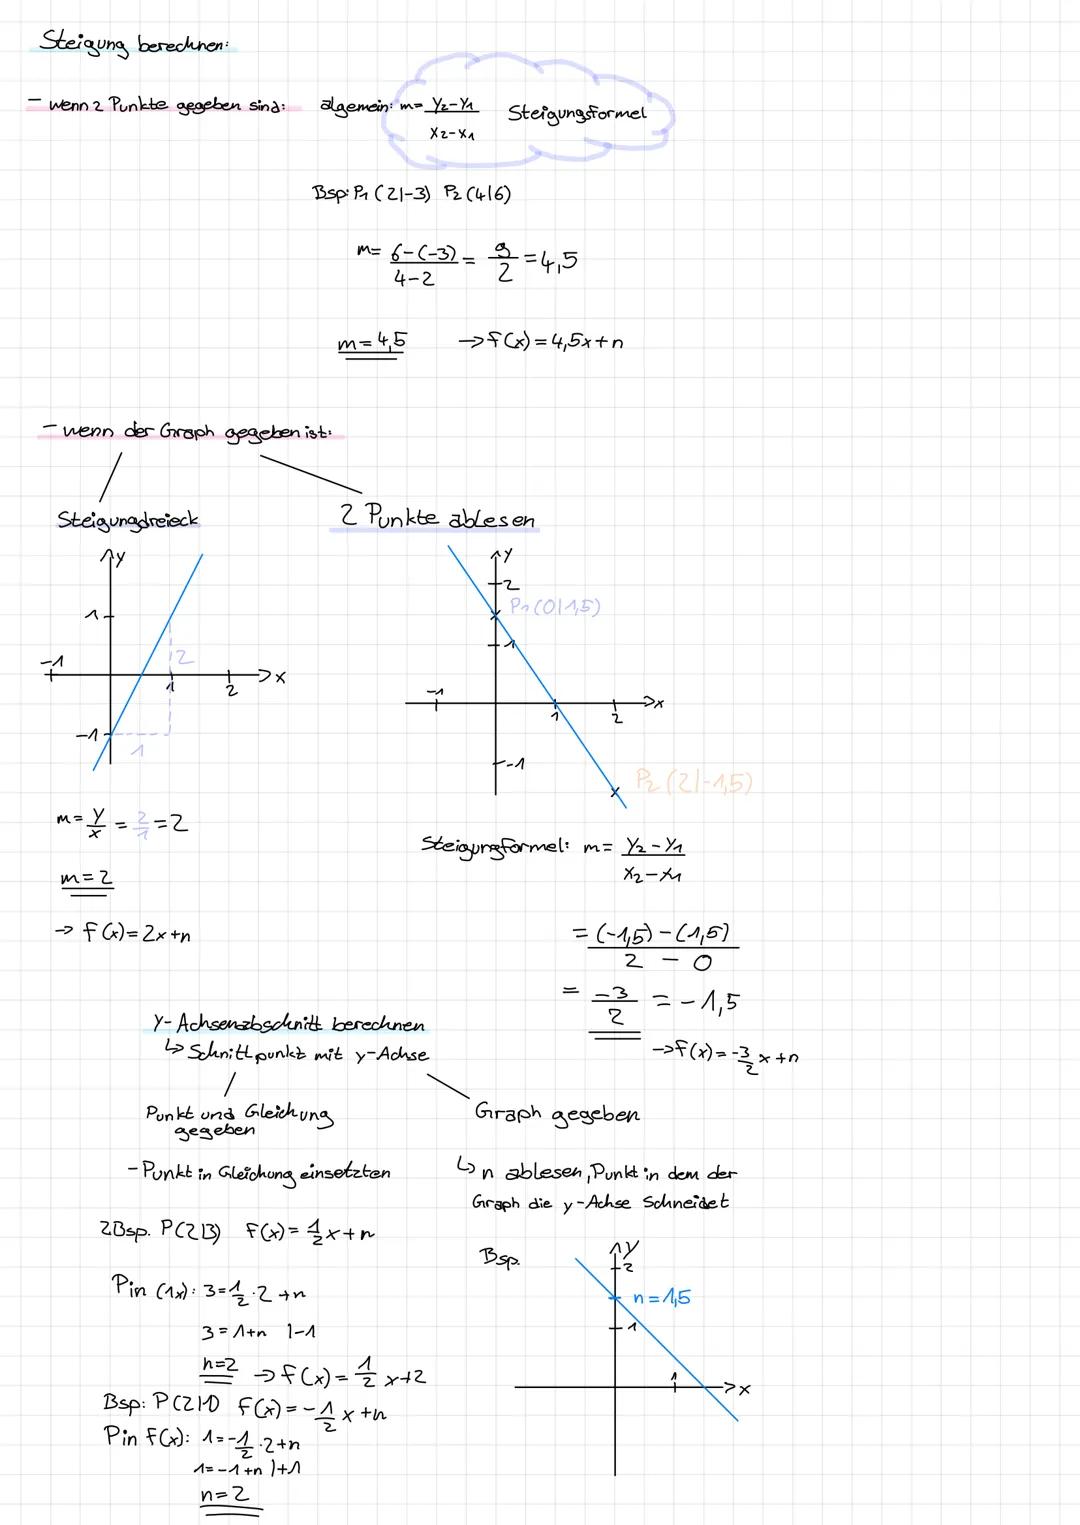 Steigung berechnen:
- wenn 2 Punkte gegeben sind: algemein: m= y₂-y₁ / x₂-x₁ Steigungsformel
Bsp: P₁ (2|-3) P₂ (4|6)
m= 6-(-3) / 4-2 = 9/2 = 4,5
m = 4,5 → f(x) = 4,5x+n
- wenn der Graph gegeben ist:
Steigungdreieck
y
1
-1 2 x
1 2
-1
1
m = y/x = 2/1 = 2
m = 2
→ f(x) = 2x+n
2 Punkte ablesen
y
2
P₁ (0|1,5)
1
-1 x
1 2
-1
P₂ (2|-1,5)
Steigungsformel: m = y₂-y₁ / x₂-x₁
= (-1,5) - (1,5) / 2 - 0
= -3/2 = -1,5
→ f(x) = -3/2 x+n
Y-Achsenabschnitt berechnen
↳ Schnittpunkt mit y-Achse
Punkt und Gleichung
gegeben
- Punkt in Gleichung einsetzten
2Bsp. P(2|3) f(x) = 1/2 x+n
P in (1x): 3 = 1/2 · 2 + n
3 = 1+n |-1
n=2 → f(x) = 1/2 x+2
Bsp: P(2|1) f(x) = -1/2 x +n
P in f(x): 1 = -1/2 · 2+n
1 = -1+n |+1
n = 2
Graph gegeben
↳ n ablesen, Punkt in dem der
Graph die y-Achse Schneidet
Bsp.
y
2
n = 1,5
1
1 x